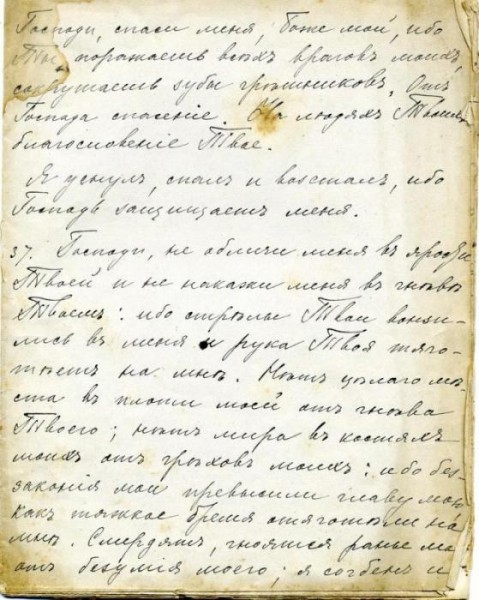 Господи, спаси меня, Боже мой, ибо
Ты поражаешь всѣхъ враговъ моихъ,
сокрушаешь зубы грѣшниковъ. Отъ
Господа спасеніе. На людяхъ Твоихъ
благословеніе Твое.
Я уснулъ, спалъ и возсталъ, ибо
Господь защищаетъ меня.
37. Господи, не обличи меня въ ярости
Твоей и не накажи меня въ гнѣвѣ
Твоемъ: ибо стрѣлы Твои вонзи-
лись въ меня и рука Твоя тяго-
тѣетъ на мнѣ. Нѣтъ цѣлаго мѣ-
ста въ плоти моей отъ гнѣва
Твоего; нѣтъ мира въ костяхъ
моихъ отъ грѣховъ моихъ: ибо без-
законія мои превысили главу мою
какъ тяжкое бремя отяготѣли на
мнѣ. Смердятъ, гноятся раны мо
отъ безумія моего; я согбенъ и